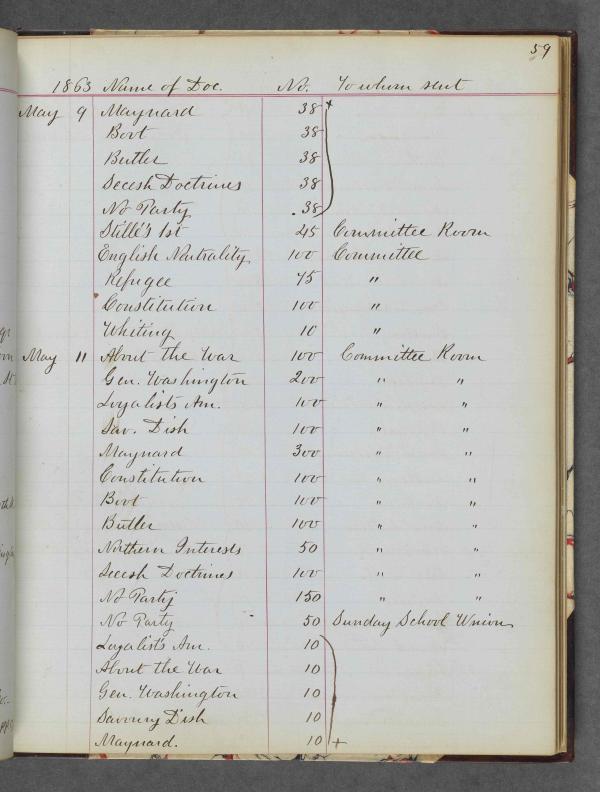 59
1863 Name of Doc. No. To whom sent
May 9 Maynard 38 +
Boot 38
Butler 38
Secesh Doctrines 38
No Party .38
Stillé's 1st 45 Committee Room
English Neutrality 100 Committee
Refugee 75 "
Constitution 100 "
Whiting 10 "
May 11 About the War 100 Committee Room
Gen. Washington 200 " "
Loyalists Am. 100 " "
Sav. Dish 100 " "
Maynard 300 " "
Constitution 100 " "
Boot 100 " "
Butler 100 " "
Northern Interests 50 " "
Secesh Doctrines 100 " "
No Party 150 " "
No Party 50 Sunday School Union
Loyalists Am. 10
About the War 10
Gen. Washington 10
Savoury Dish 10
Maynard. 10 +